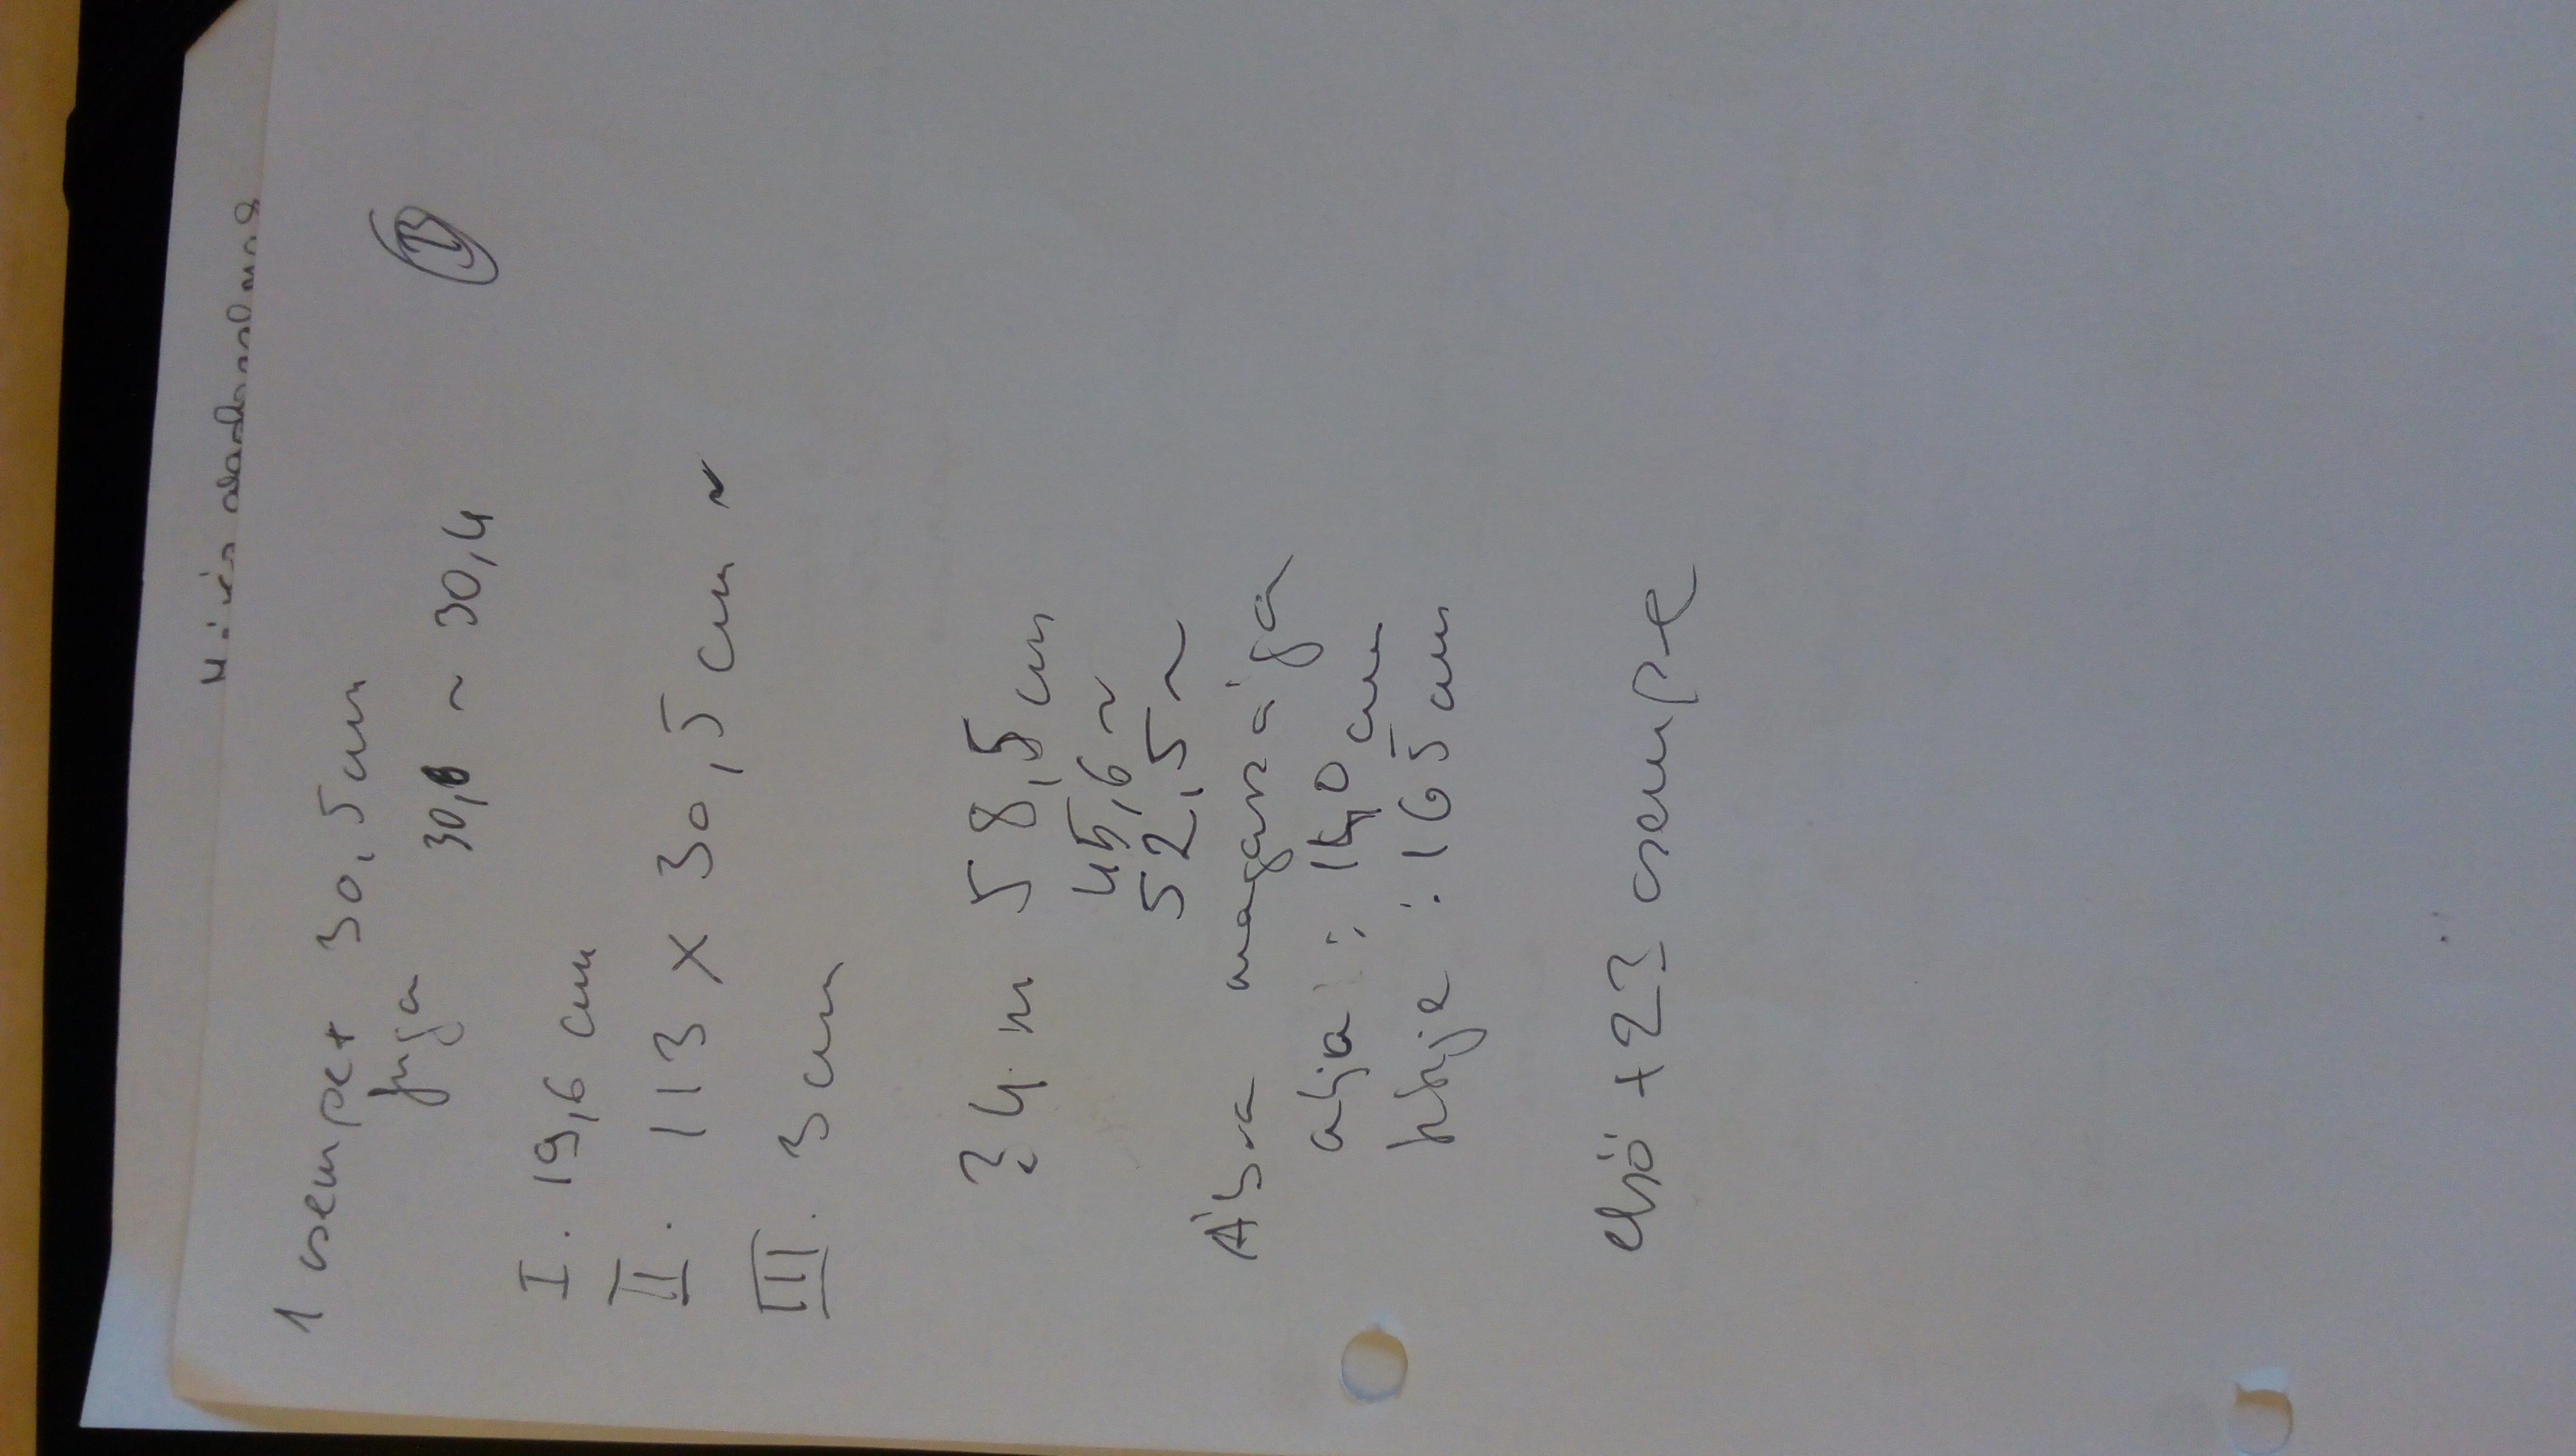 1 csempe+ 30,5cm
fuga
30,6 ~ 30,4
I. 19,6 cm
II. 113 x 30,5 cm ~
III. 3 cm
34 m 58,5 cm
45,6 ~
52,5 ~
Ábra magassága
alja : 140 cm
teteje : 165 cm
első + 23 csempe